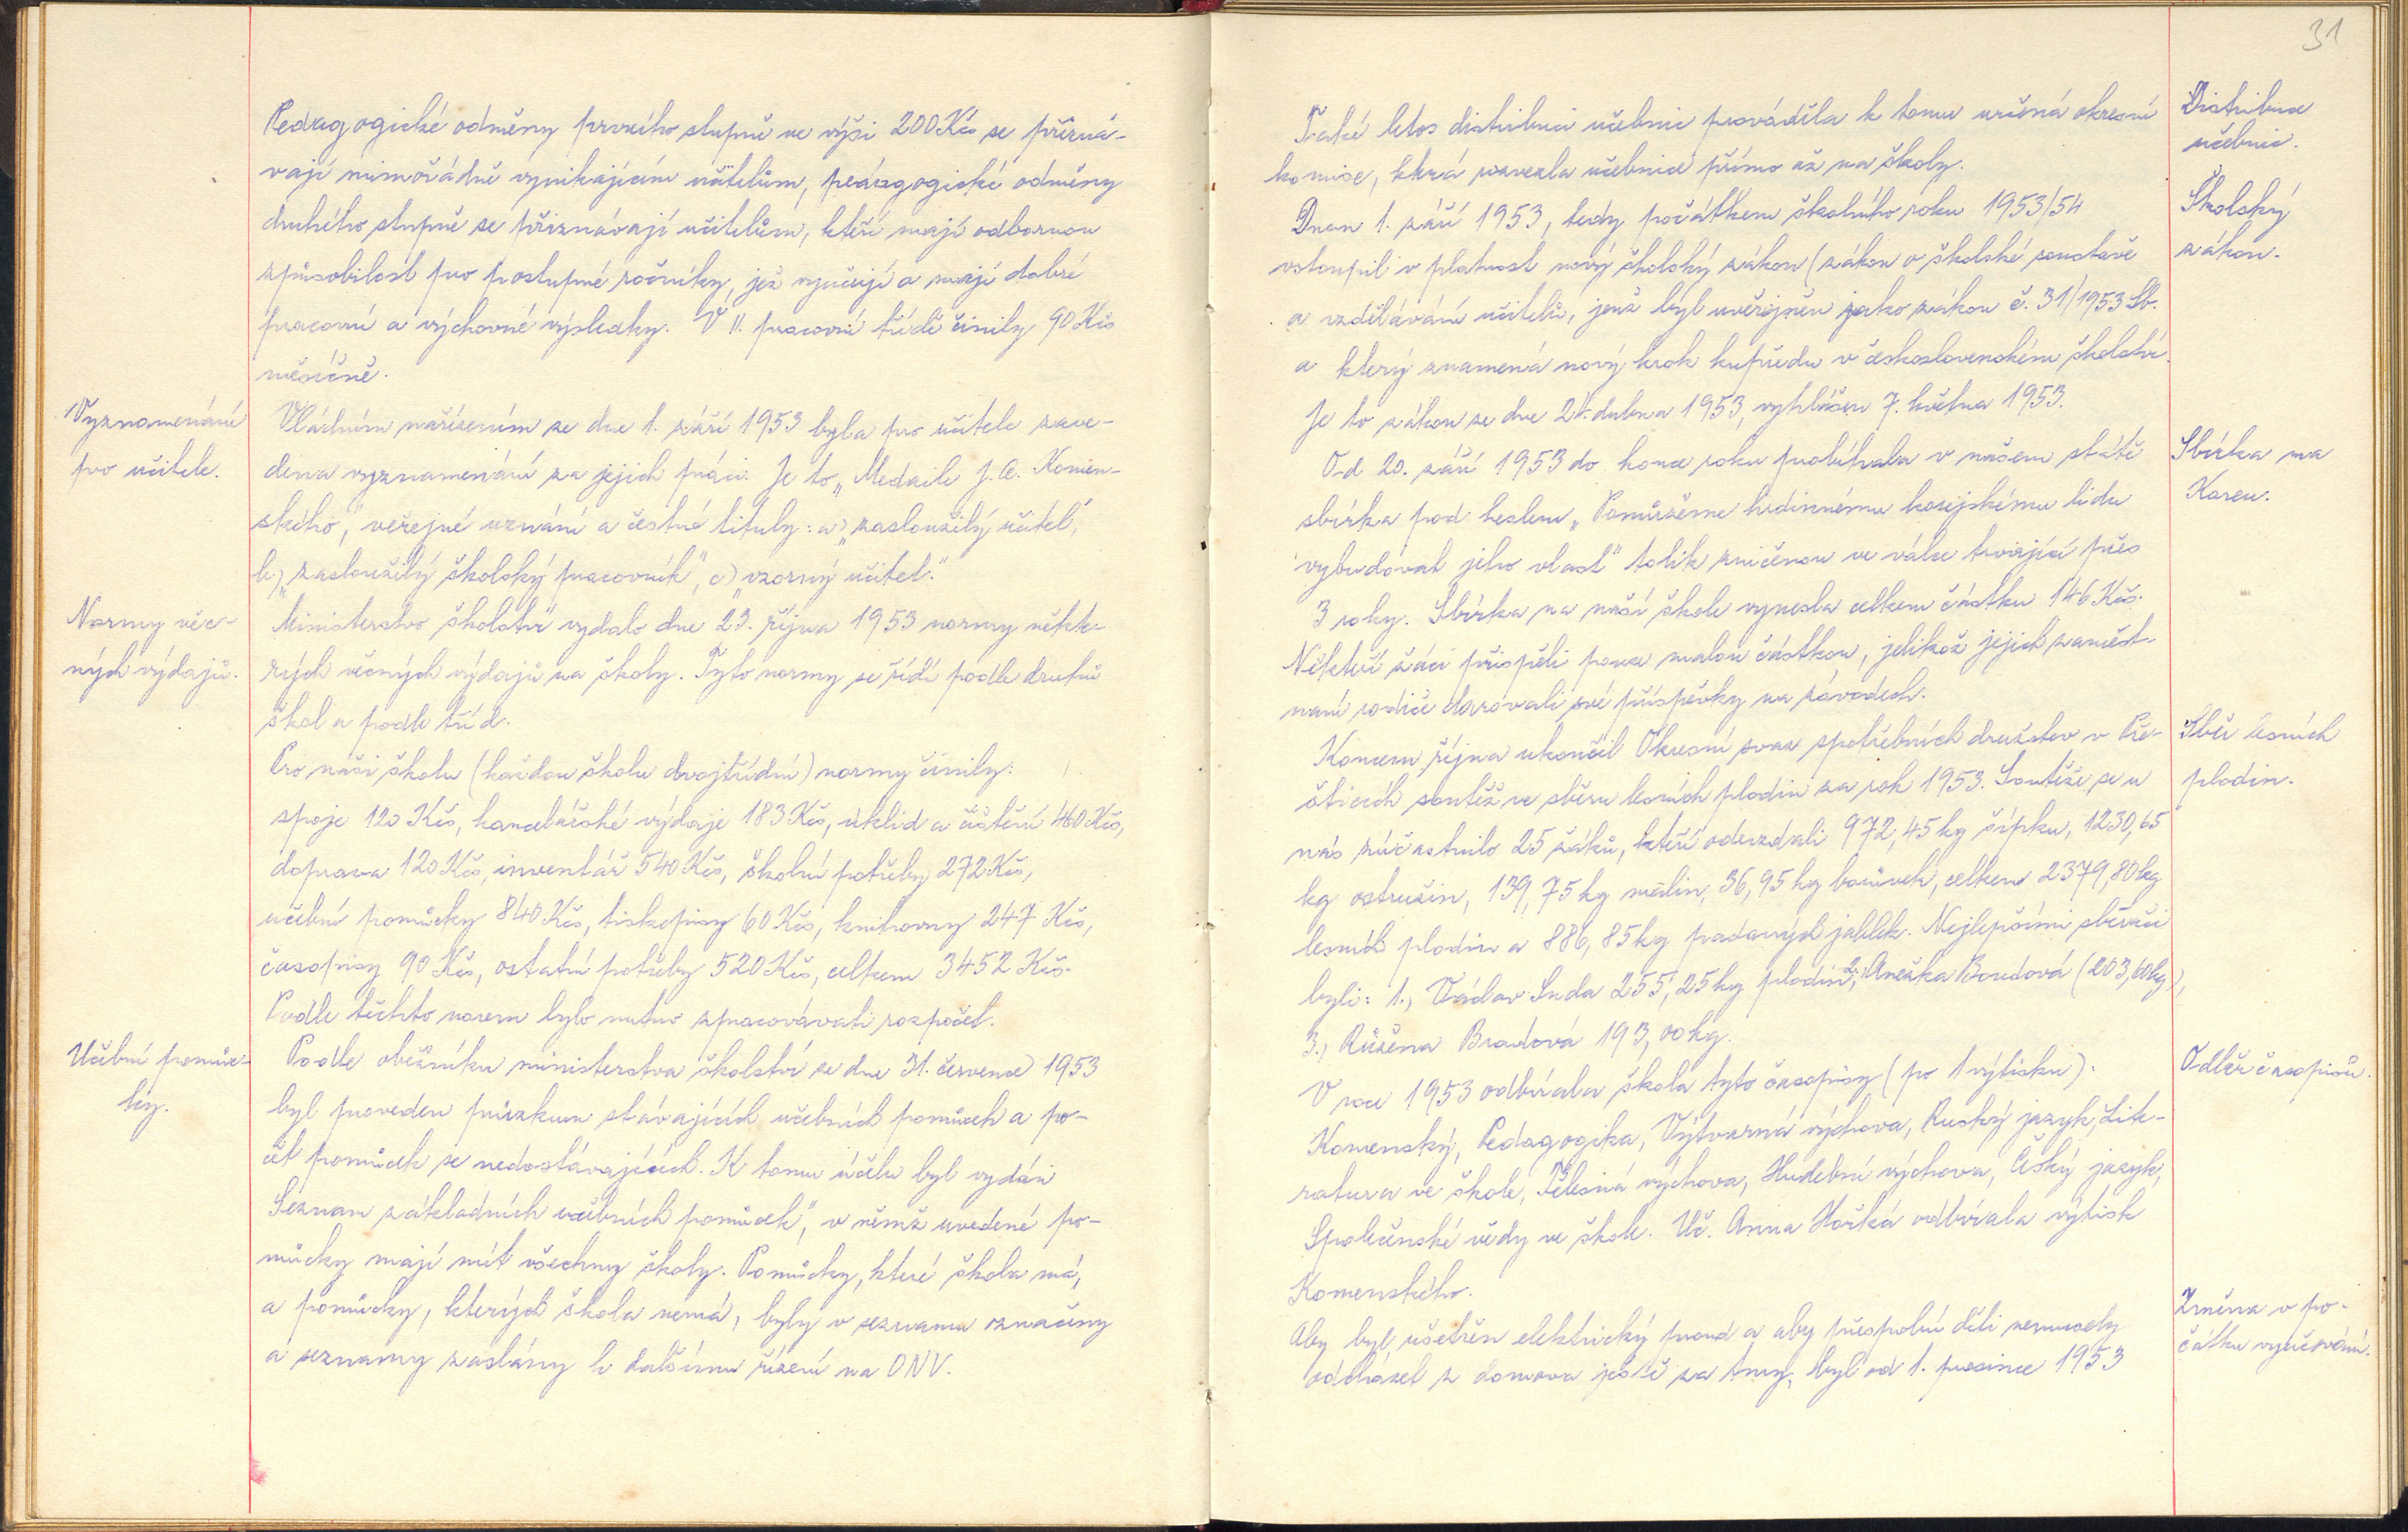 Pedagogické odměny prvního stupně ve výši 200 Kčs se přizná-
vají mimořádně vynikajícím učitelům, pedagogické odměny
druhého stupně se přiznávají učitelům, kteří mají odbornou
způsobilost pro postupné ročníky, jež vyučují a mají dobré
pracovní a výchovné výsledky. V II. pracovní třídě činily 90 Kčs
měsíčně.
Vyznamenání
pro učitele.
Vládním nařízením ze dne 1. září 1953 byla pro učitele zave-
dena vyznamenání za jejich práci. Je to „Medaile J. A. Komen-
ského," veřejné uznání a čestné tituly: a) „zasloužilý učitel",
b) „zasloužilý školský pracovník", c) „vzorný učitel."
Normy věc-
ných výdajů.
Ministerstvo školství vydalo dne 23. října 1953 normy někte-
rých věcných výdajů na školy. Tyto normy se řídí podle druhů
škol a podle tříd.
Pro naši školu (každou školu dvojtřídní) normy činily:
spoje 120 Kčs, kancelářské výdaje 183 Kčs, úklid a čištění 460 Kčs,
doprava 120 Kčs, inventář 540 Kčs, školní potřeby 272 Kčs,
učební pomůcky 840 Kčs, tiskopisy 60 Kčs, knihovny 247 Kčs,
časopisy 90 Kčs, ostatní potřeby 520 Kčs, celkem 3452 Kčs.
Podle těchto norem bylo nutno zpracovávati rozpočet.
Učební pomůc-
ky.
Podle oběžníku ministerstva školství ze dne 31. července 1953
byl proveden průzkum stávajících učebních pomůcek a po-
čet pomůcek se nedostávajících. K tomu účelu byl vydán
Seznam základních učebních pomůcek", v němž uvedené po-
můcky mají mít všechny školy. Pomůcky, které škola má,
a pomůcky, kterých škola nemá, byly v seznamu označeny
a seznamy zaslány k dalšímu řízení na ONV.
31
Také letos distribuci učebnic prováděla k tomu určená okresní
komise, která rozvezla učebnice přímo až na školy.
Distribuce
učebnic.
Dnem 1. září 1953, tedy počátkem školního roku 1953/54
vstoupil v platnost nový školský zákon (zákon o školské soustavě
a vzdělávání učitelů, jenž byl uveřejněn jako zákon č. 31/1953 Sb.
a který znamená nový krok kupředu v československém školství.
Je to zákon ze dne 24. dubna 1953, vyhlášen 7. května 1953.
Školský
zákon.
Od 20. září 1953 do konce roku probíhala v našem státě
sbírka pod heslem „Pomůžeme hrdinnému korejskému lidu
vybudovat jeho vlast" tolik zničenou ve válce trvající přes
3 roky. Sbírka na naší škole vynesla celkem částku 146 Kčs.
Někteří žáci přispěli pouze malou částkou, jelikož jejich zaměst-
naní rodiče darovali své příspěvky na závodech.
Sbírka na
Koreu.
Koncem října ukončil Okresní svaz spotřebních družstev v Pře-
šticích soutěž ve sběru lesních plodin za rok 1953. Soutěže se u
nás zúčastnilo 25 žáků, kteří odevzdali 972,45 kg šípku, 1230,65
kg ostružin, 139,75 kg malin, 36,95 kg borůvek, celkem 2379,80 kg
lesních plodin a 886,85 kg padaných jablek. Nejlepšími sběrači
byli: 1., Václav Suda 255,25 kg plodin, 2., Anežka Boudová (203,60 kg),
3., Růžena Bradová 193,00 kg.
Sběr lesních
plodin.
V roce 1953 odbírala škola tyto časopisy (po 1 výtisku):
Komenský, Pedagogika, Výtvarná výchova, Ruský jazyk, Lite-
ratura ve škole, Tělesná výchova, Hudební výchova, Český jazyk,
Společenské vědy ve škole. Uč. Anna Horká odbírala výtisk
Komenského.
Odběr časopisů.
Aby byl ušetřen elektrický proud a aby přespolní děti nemusely
odcházet z domova ještě za tmy, byl od 1. prosince 1953
Změna v po-
čátku vyučování.